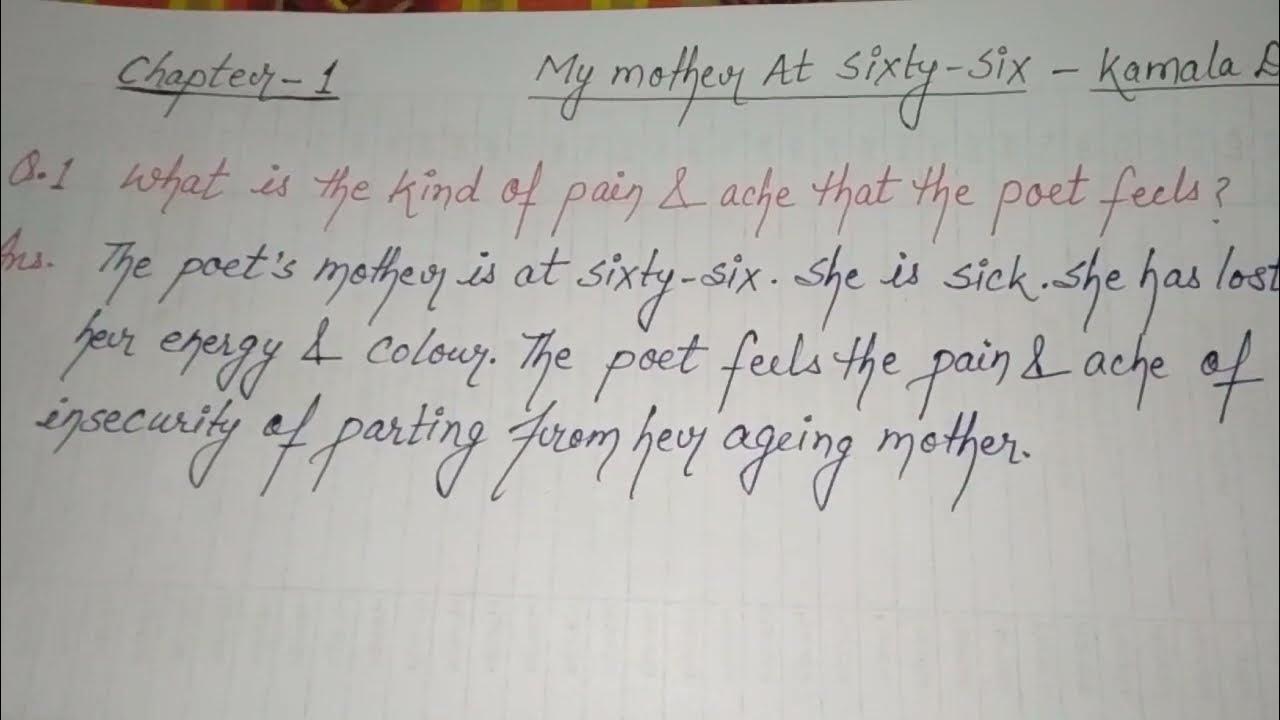 Chapter-1 My mother At Sixty-Six - Kamala D
Q.1 What is the kind of pain & ache that the poet feels?
Ans. The poet's mother is at sixty-six. She is sick. She has lost
her energy & colour. The poet feels the pain & ache of
insecurity of parting from her ageing mother.